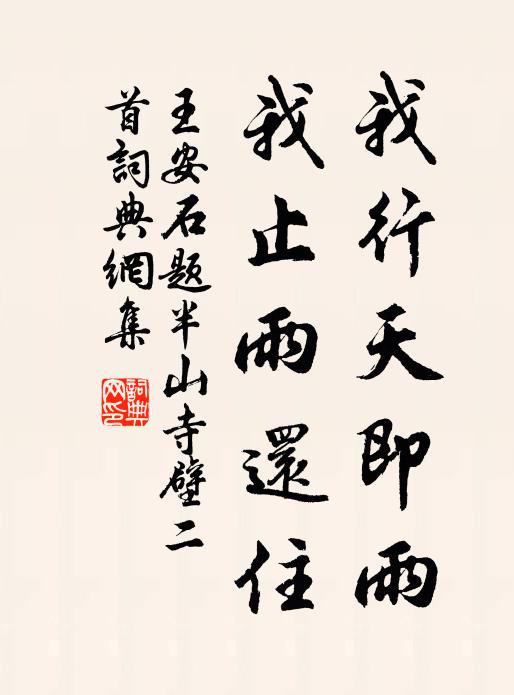 我行天即雨
我止雨還住
王安石题半山寺壁二
首詞典網集
詞典
网印